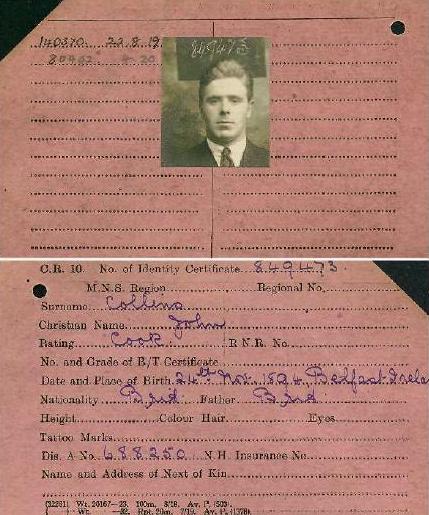 140370. 22.8.19
849473
C.R. 10. No. of Identity Certificate 849473.
M.N.S. Region Regional No.
Surname Collins
Christian Name John
Rating Cook R.N.R. No.
No. and Grade of B/T Certificate
Date and Place of Birth 24th Nov. 1894 Belfast Irela
Nationality Brit Father Brit
Height Colour Hair Eyes
Tattoo Marks
Dis. A No. 688250 N.H. Insurance No.
Name and Address of Next of Kin